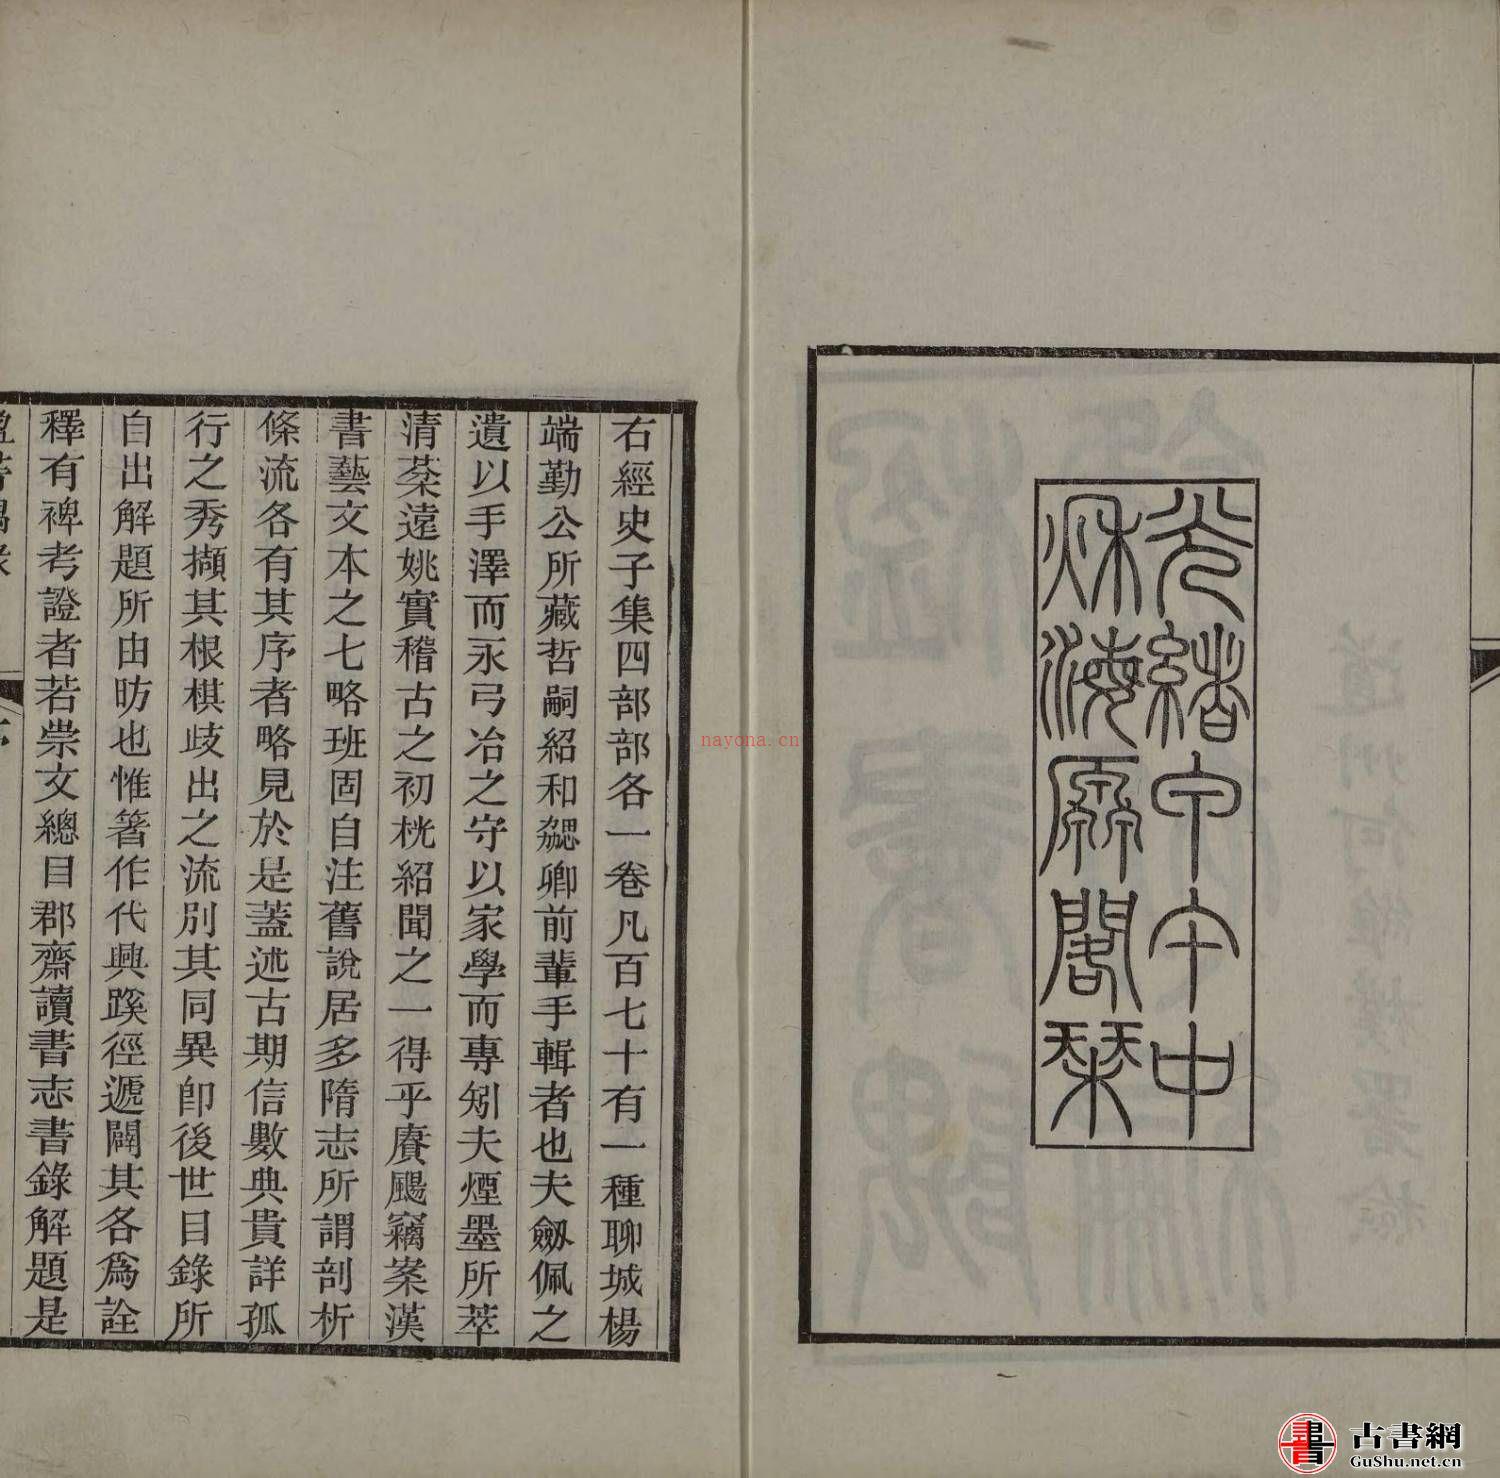 光緒甲午中
秌海原閣栞
右經史子集四部部各一卷凡百七十有一種聊城楊
端勤公所藏哲嗣紹和勰卿前輩手輯者也夫劔佩之
遺以手澤而永弓冶之守以家學而專矧夫煙墨所萃
清棻遠姚實稽古之初桄紹聞之一得乎賡颺竊案漢
書藝文本之七略班固自注舊說居多隋志所謂剖析
條流各有其序者略見於是蓋述古期信數典貴詳孤
行之秀擷其根棋歧出之流別其同異卽後世目錄所
自出解題所由昉也惟箸作代興蹊徑遞闢其各爲詮
釋有裨考證者若崇文總目郡齋讀書志書錄解題是
nayona.cn
古書網
GuShu.net.cn